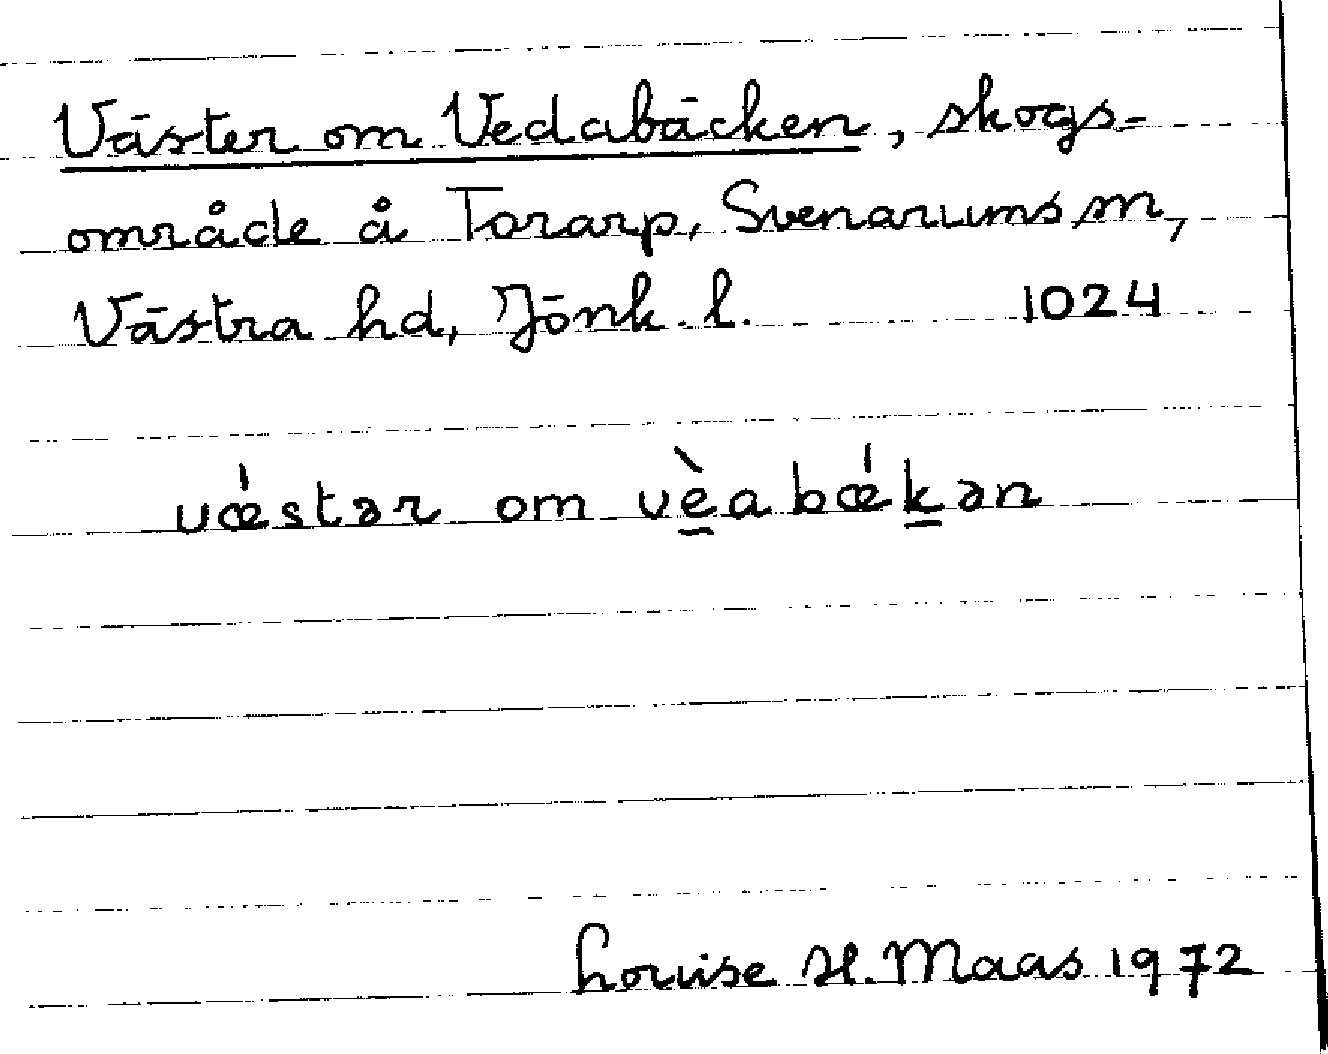 Väster om Vedabäcken, skogs-
område å Tararp, Svenarums sn,
Västra hd, Jönk. l. 1024
vǽstər om vè̠abǽk̠ən
Louise H. Maas 1972